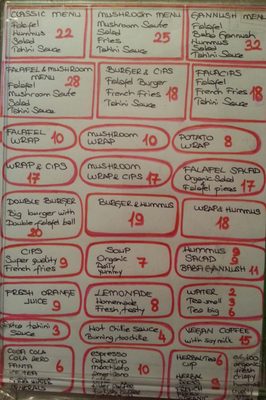 CLASSIC MENU
Falafel
Hummus
Salad
Tahini Sauce
22
MUSHROOM MENU
Mushroom Saute
Salad
Fries
Tahini Sauce
25
GANNUSH MENU
Falafel
Baba Gannush
Hummus
Salad
Tahini Sauce
32
FALAFEL & MUSHROOM
MENU
Falafel
Mushroom Saute
Salad
Tahini Sauce
28
BURGER & CIPS
Falafel Burger
French Fries
Tahini Sauce
18
FALACIPS
Falafel
French Fries
Tahini Sauce
18
FALAFEL
WRAP
10
MUSHROOM
WRAP
10
POTATO
WRAP
8
WRAP & CIPS
17
MUSHROOM
WRAP & CIPS
17
FALAFEL SALAD
Organic Salad
Falafel pieces
17
DOUBLE BURGER
Big burger with
Double falafel ball
20
BURGER & HUMMUS
19
WRAP & HUMMUS
18
CIPS
Super quality
French fries
9
SOUP
Organic
Daily
Yummy
7
HUMMUS 9
SALAD 9
BABA GANNUSH 11
FRESH ORANGE
JUICE
9
LEMONADE
Homemade
Fresh, tasty
8
WATER 2
Tea small 3
Tea big 6
Extra tahini
Sauce
3
Hot Chilie Sauce
Burning touchile
4
VEGAN COFFEE
with soy milk
15
COCA COLA
COLA ZERO
FANTA
ICE TEA
6
espresso
Capucino
macchiato
10
HERBAL TEA
CUP
6
HERBAL
9